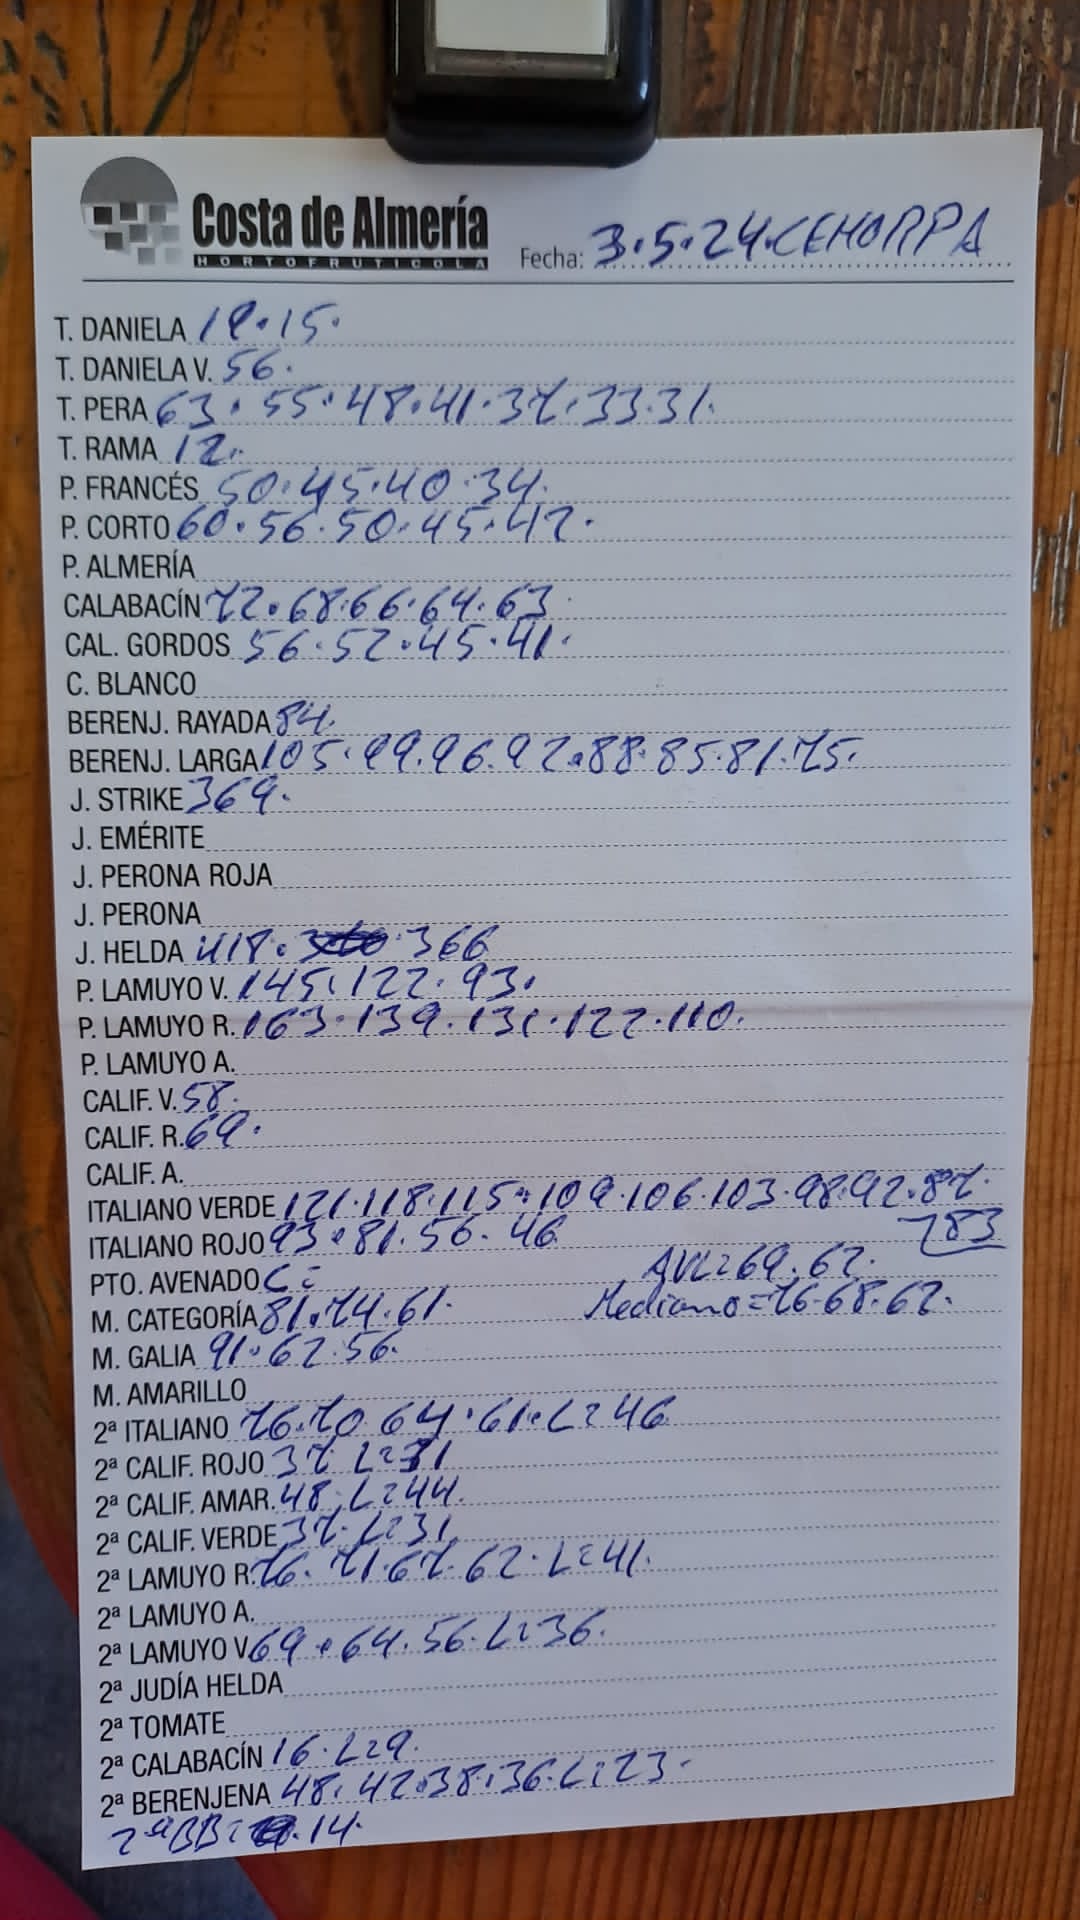 Costa de Almería
HORTOFRUTICOLA
Fecha: 3.5.24.CEHORPA
T. DANIELA 19.15.
T. DANIELA V. 56.
T. PERA 63.55.48.41.37.33.31.
T. RAMA 12.
P. FRANCÉS 50.45.40.34.
P. CORTO 60.56.50.45.42.
P. ALMERÍA
CALABACÍN 72.68.66.64.63
CAL. GORDOS 56.52.45.41.
C. BLANCO
BERENJ. RAYADA 84.
BERENJ. LARGA 105.99.96.92.88.85.81.75.
J. STRIKE 369.
J. EMÉRITE
J. PERONA ROJA
J. PERONA
J. HELDA 418. 366
P. LAMUYO V. 145.122.93.
P. LAMUYO R. 163.139.131.122.110.
P. LAMUYO A.
CALIF. V. 58.
CALIF. R. 69.
CALIF. A.
ITALIANO VERDE 121.118.115.109.106.103.98.92.87.
83
ITALIANO ROJO 93.81.56.46
PTO. AVENADO C= 69.62.
M. CATEGORÍA 81.74.61. Mediano=76.68.62.
M. GALIA 91.62.56.
M. AMARILLO
2ª ITALIANO 76.70.64.61.L=46
2ª CALIF. ROJO 37.L=31
2ª CALIF. AMAR. 48.L=44.
2ª CALIF. VERDE 37.L=31
2ª LAMUYO R. 76.71.67.62.L=41.
2ª LAMUYO A.
2ª LAMUYO V. 69.64.56.L=36.
2ª JUDÍA HELDA
2ª TOMATE
2ª CALABACÍN 16.L=9.
2ª BERENJENA 48.42.38.36.L=23.
2ªBB= 14.